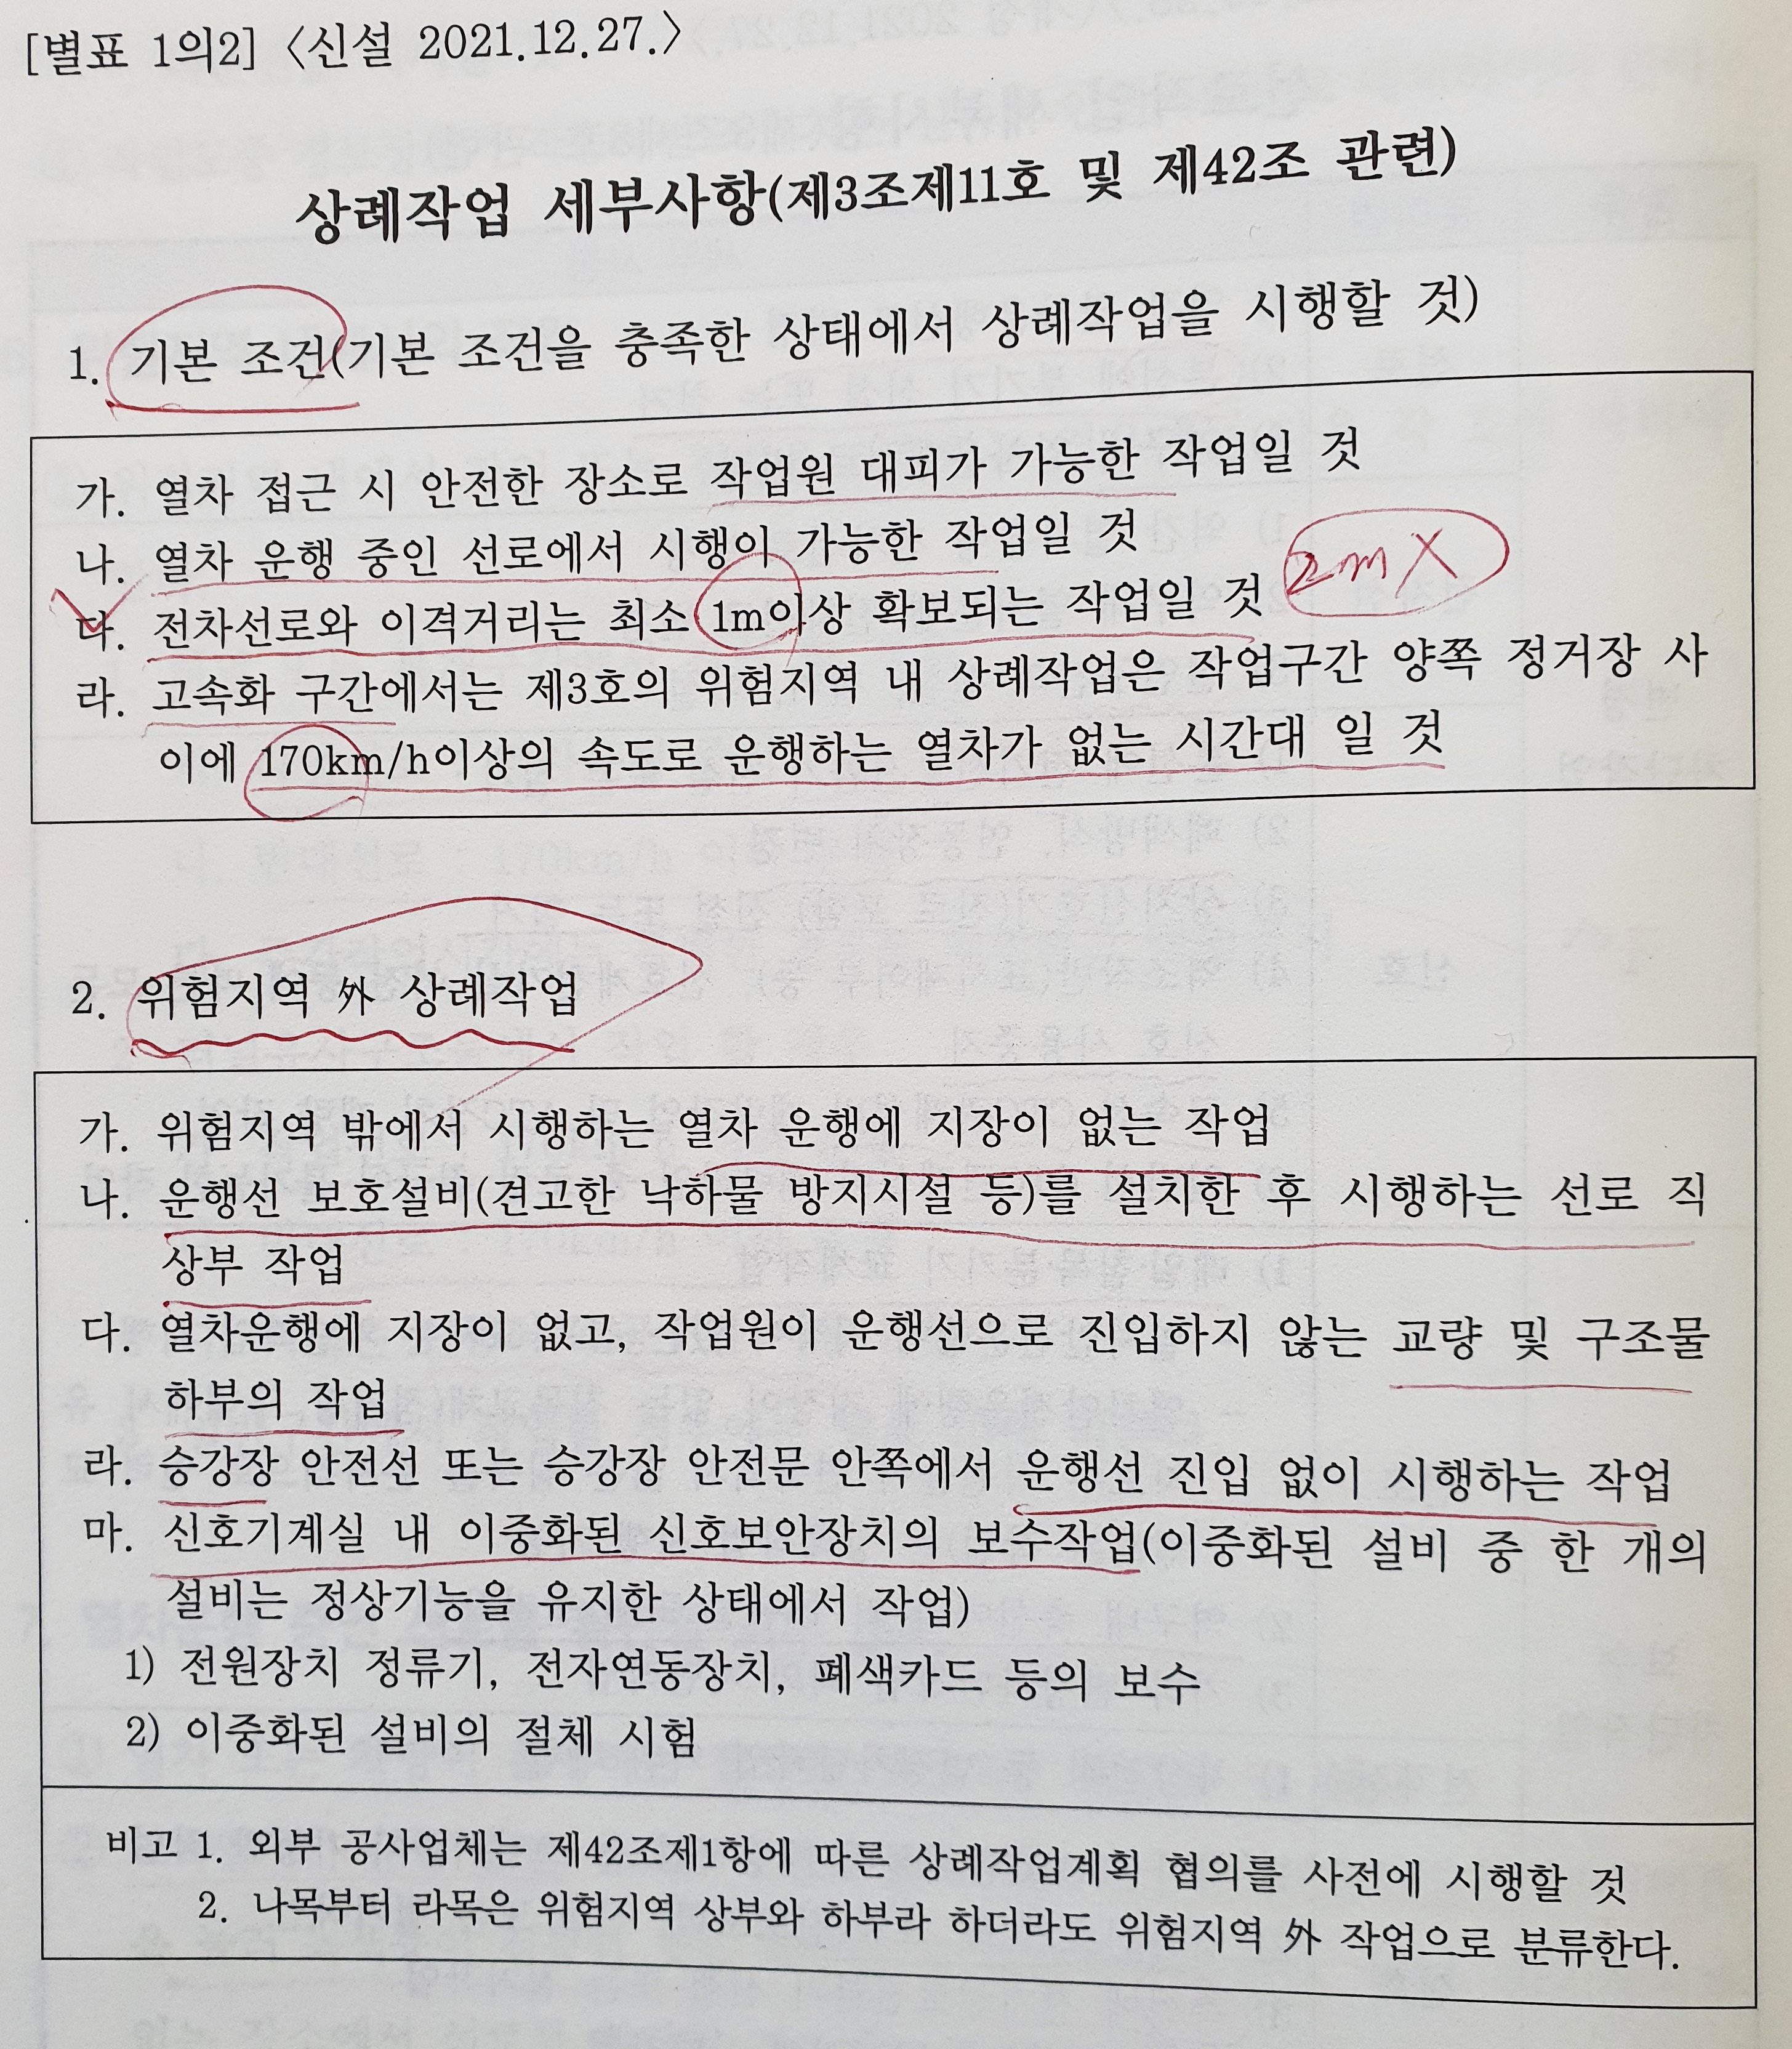 [별표 1의2] 〈신설 2021.12.27.〉
상례작업 세부사항(제3조제11호 및 제42조 관련)
1. 기본 조건(기본 조건을 충족한 상태에서 상례작업을 시행할 것)
가. 열차 접근 시 안전한 장소로 작업원 대피가 가능한 작업일 것
나. 열차 운행 중인 선로에서 시행이 가능한 작업일 것
2m X
다. 전차선로와 이격거리는 최소 1m이상 확보되는 작업일 것
라. 고속화 구간에서는 제3호의 위험지역 내 상례작업은 작업구간 양쪽 정거장 사
이에 170km/h이상의 속도로 운행하는 열차가 없는 시간대 일 것
2. 위험지역 外 상례작업
가. 위험지역 밖에서 시행하는 열차 운행에 지장이 없는 작업
나. 운행선 보호설비(견고한 낙하물 방지시설 등)를 설치한 후 시행하는 선로 직
상부 작업
다. 열차운행에 지장이 없고, 작업원이 운행선으로 진입하지 않는 교량 및 구조물
하부의 작업
라. 승강장 안전선 또는 승강장 안전문 안쪽에서 운행선 진입 없이 시행하는 작업
마. 신호기계실 내 이중화된 신호보안장치의 보수작업(이중화된 설비 중 한 개의
설비는 정상기능을 유지한 상태에서 작업)
1) 전원장치 정류기, 전자연동장치, 폐색카드 등의 보수
2) 이중화된 설비의 절체 시험
비고 1. 외부 공사업체는 제42조제1항에 따른 상례작업계획 협의를 사전에 시행할 것
2. 나목부터 라목은 위험지역 상부와 하부라 하더라도 위험지역 外 작업으로 분류한다.